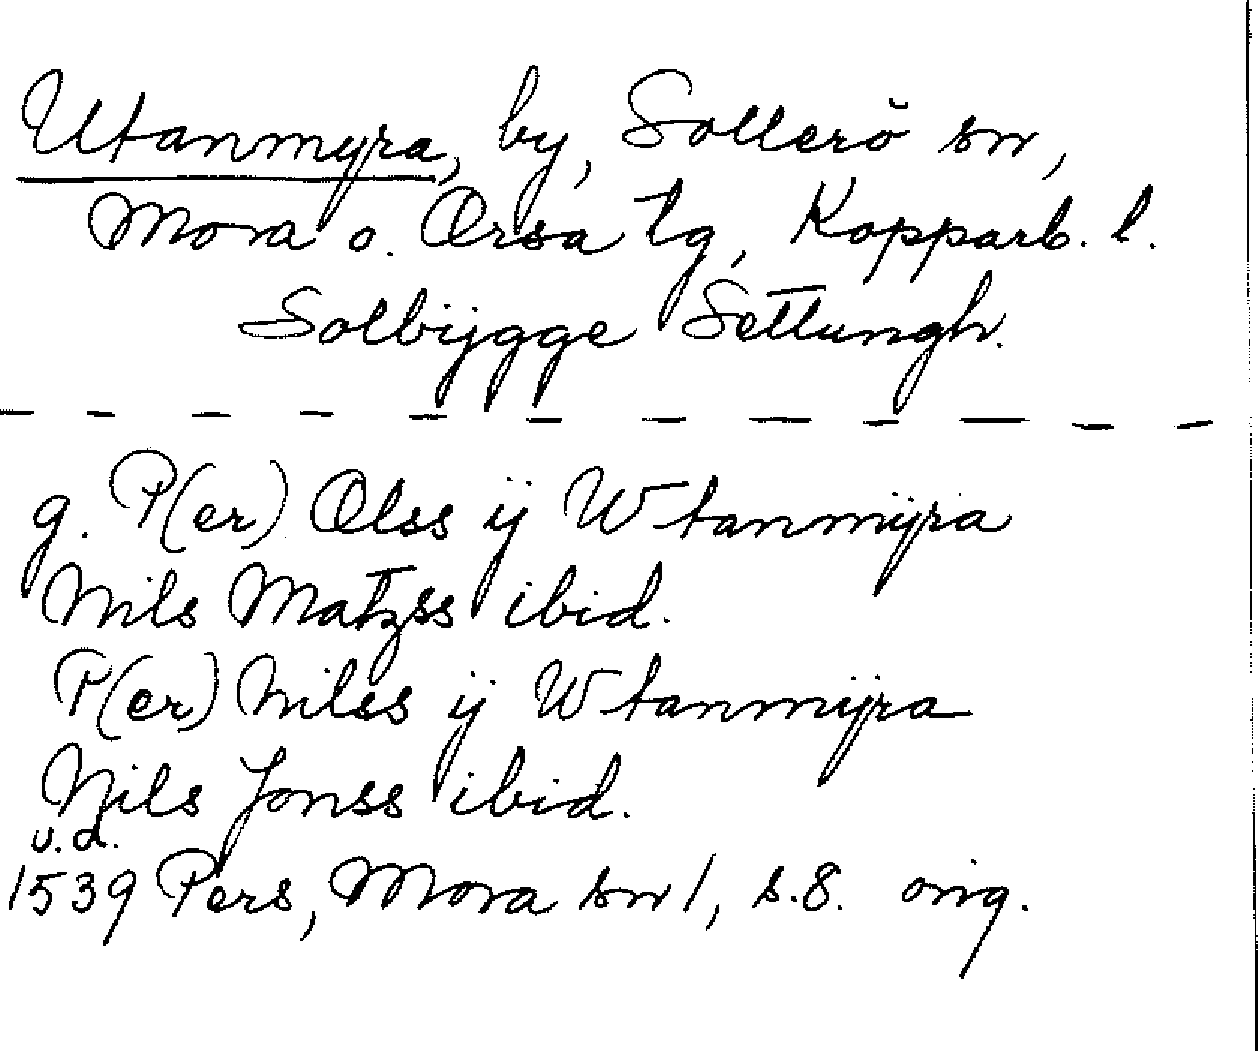 Utanmyra, by, Sollerö sn,
Mora o. Orsa tg, Kopparb. l.
Solbijgge Settungh.
g. P(er) Olss ij Wtanmijra
Nils Matzss ibid.
P(er) Nilss ij Wtanmijra
Nils Jonss ibid.
u.d.
1539 Pers, Mora sn 1, s. 8. orig.